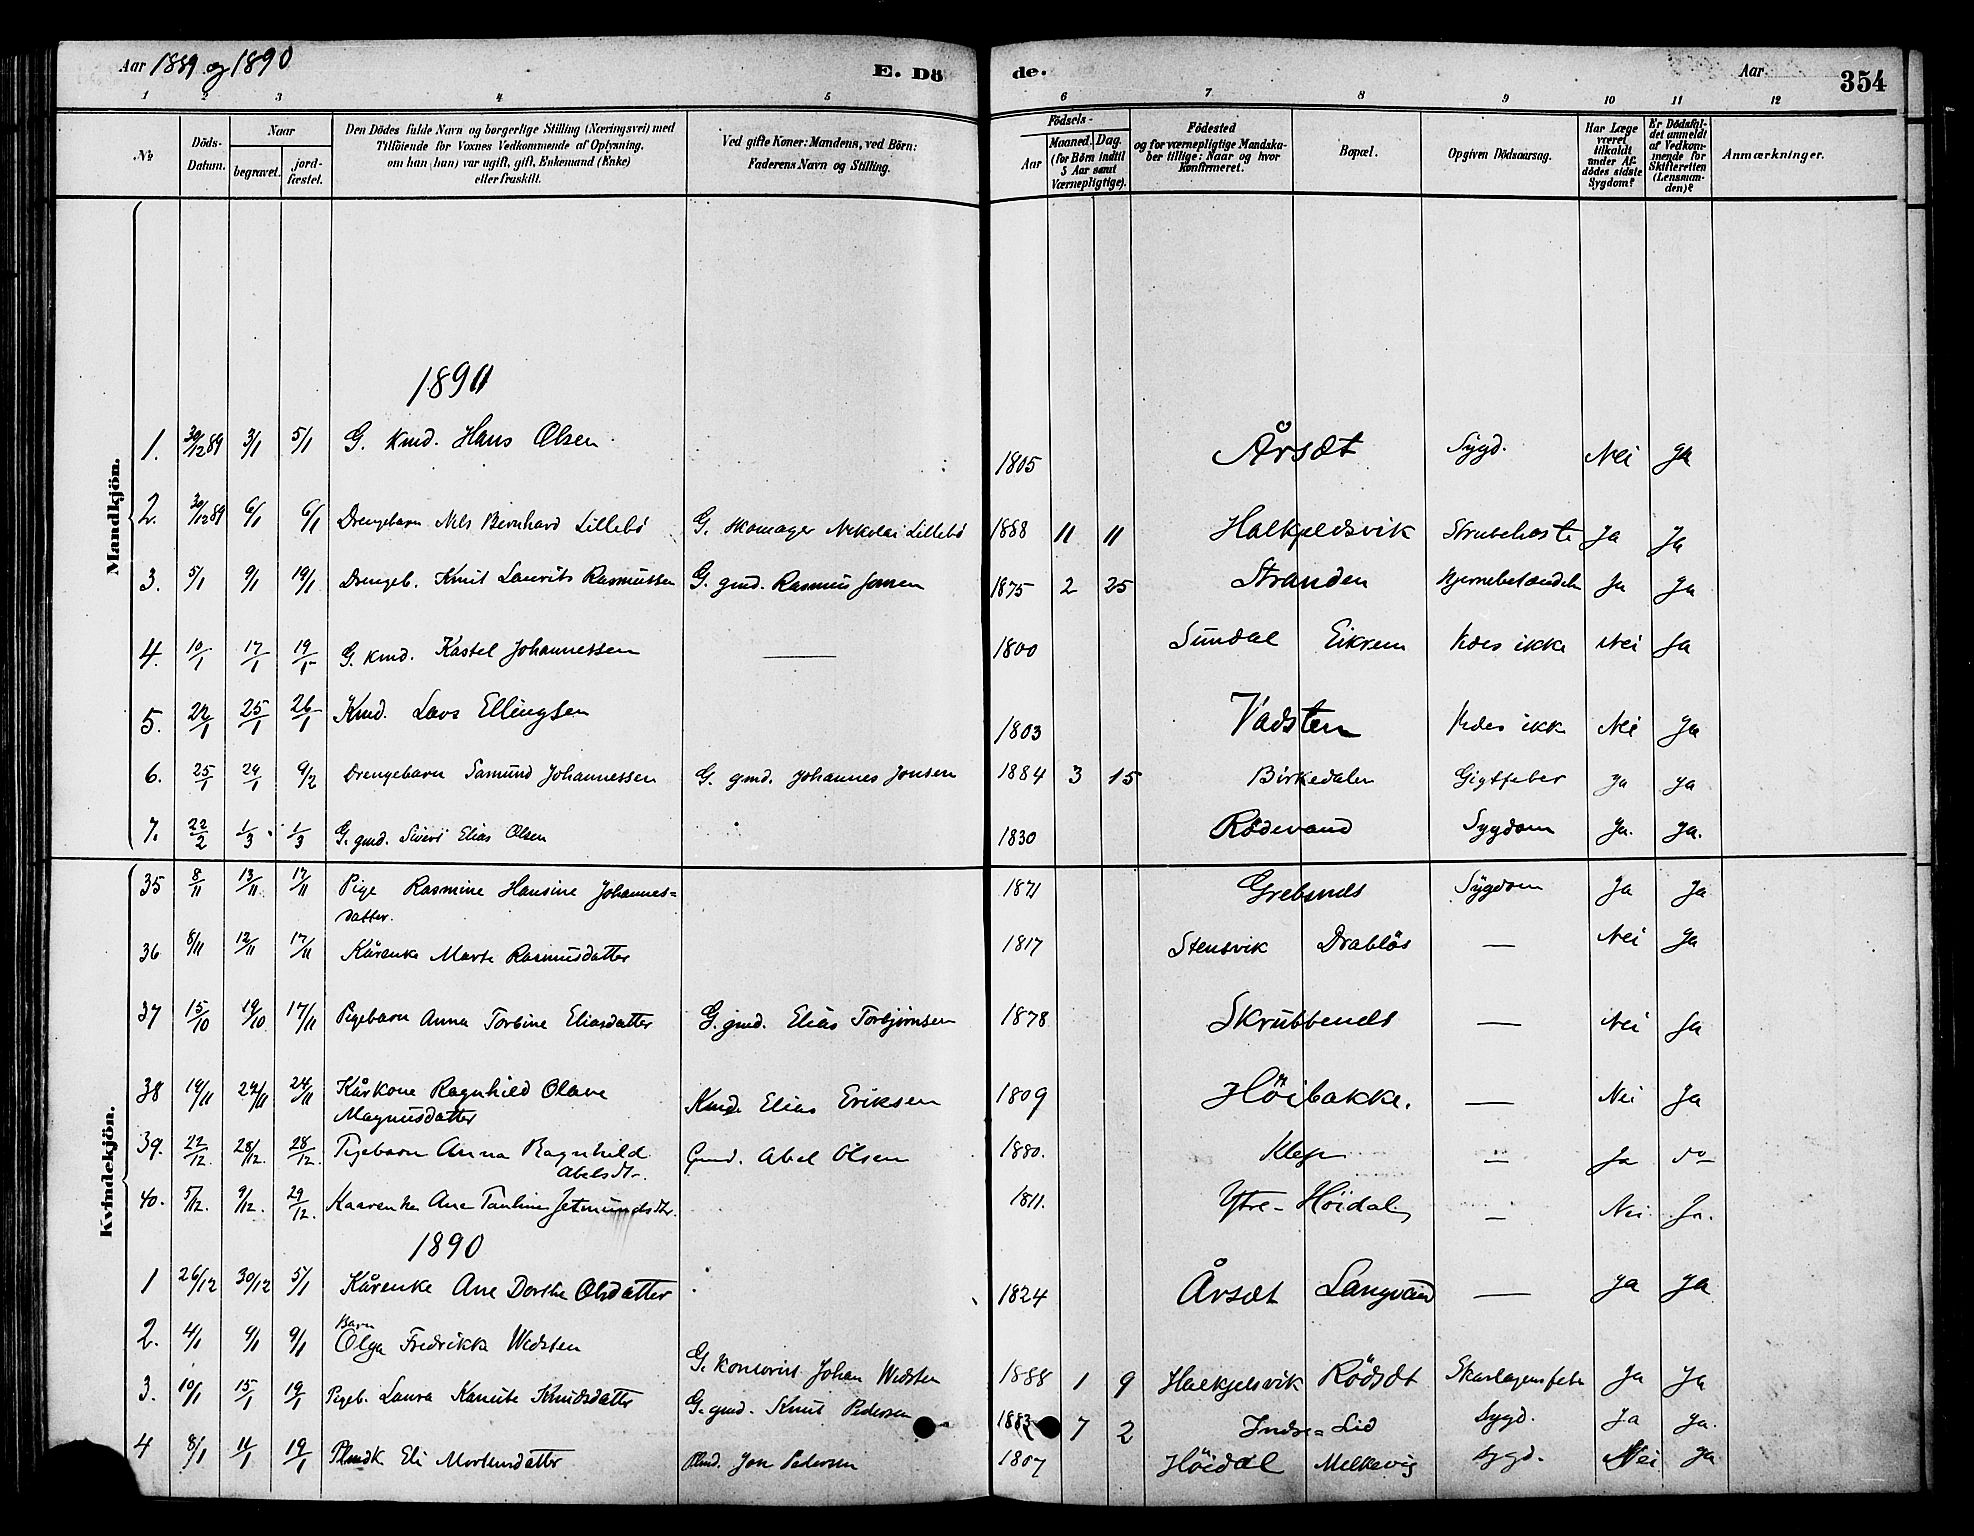 Aar 1889 og 1890
E. Dö
de.
Aar
354
1 2 3 4 5 6 7 8 9 10 11 12
No
Döds-Datum.
Naar
begravet.
jordfæstet.
Den Dödes fulde Navn og borgerlige Stilling (Næringsvei) med
Tilföiende for Voxnes Vedkommende af Oplysning,
om han (hun) var ugift, gift, Enkemand (Enke)
eller fraskilt.
Ved gifte Koner: Mandens, ved Börn:
Faderens Navn og Stilling.
Födsels-
Aar
Maaned. Dag.
(for Börn indtil
5 Aar samt
Værnepligtige).
Födested
og for værnepligtige Mandskaber tillige: Naar og hvor
konfirmeret.
Bopæl.
Opgiven Dödsaarsag.
Har Læge
været
tilkaldt
under Afdödes sidste
Sygdom?
Er Dödsfaldet anmeldt
af Vedkommende for
Skifteretten
(Lensmanden)?
Anmærkninger.
Mandkjön.
1890
1. 30/12 89 3/1 5/1 G. Kmd. Hans Olsen 1805 Årsæt Sygd. Nei Ja
2. 30/12 89 6/1 6/1 Drengebarn Nils Bernhard Lillebö G. Skomager Nikolai Lillebö 1888 11 11 Halkjelsvik Strubehoste Ja Ja
3. 5/1 9/1 19/1 Drengeb. Knut Laurits Rasmussen G. gmd. Rasmus Jonsen 1875 2 25 Stranden Hjernebetændels Ja Ja
4. 10/1 17/1 19/1 G. Kmd. Kastel Johannessen — 1800 Sundal Eikrem Vides ikke Nei Ja
5. 22/1 25/1 26/1 Kmd. Lars Ellingsen 1803 Vadsten Vides ikk Nei Ja
6. 25/1 29/1 9/2 Drengebarn Samund Johannessen G. gmd. Johannes Jonsen 1884 3 15 Birkedalen Gigtfeber Ja Ja
7. 22/2 1/3 1/3 G. gmd. Sivert Elias Olsen 1830 Rödevand Sygdom Ja. Ja.
Kvindekjön.
35 8/11 13/11 17/11 Pige Rasmine Hansine Johannes=
datter. 1871 Grebsnds Sygdom Ja Ja
36 8/11 12/11 17/11 Kårenke Marte Rasmusdatter 1817 Stensvik Drablös — Nei Ja
37 15/10 19/10 17/11 Pigebarn Anna Torbine Eliasdatter G. gmd. Elias Torbjörnsen 1878 Skrubbends — Nei Ja
38 19/11 24/11 24/11 Kårkone Ragnhild Olave
Magnusdatter Kmd. Elias Eriksen 1809 Höibakke. — Nei Ja
39. 22/12 28/12. 28/12. Pigebarn Anna Ragnhild
Abelsdt. Gmd. Abel Olsen 1880. Klep — Ja do
40. 5/12. 9/12. 29/12. Kaarenke Ane Pauline Jetmundsdtr. 1811. Ytre-Höidal — Nei Ja.
1890
1 26/12 30/12 5/1 Kårenke Ane Dorthe Olsdatter 1824 Årsæt Langvand — Ja Ja
2. 4/1 9/1 9/1 Barn
Olga Fredrikke Wedsten G. Johan Wedsten 1888 1 9 Halkjelsvik Rödsæt Skarlagensfeber Ja Ja
3. 10/1 15/1 19/1 Pigeb. Laura Kanute Knudsdatter G. gmd. Knut Pedersen 1883 7 2 Indre=Lid Sygd. Ja Ja.
4 8/1 11/1 19/1 Plmdk Eli Mortensdatter Plmd. Jon Pedersen 1807 Höidal Melkevig Sygd. Nei Ja